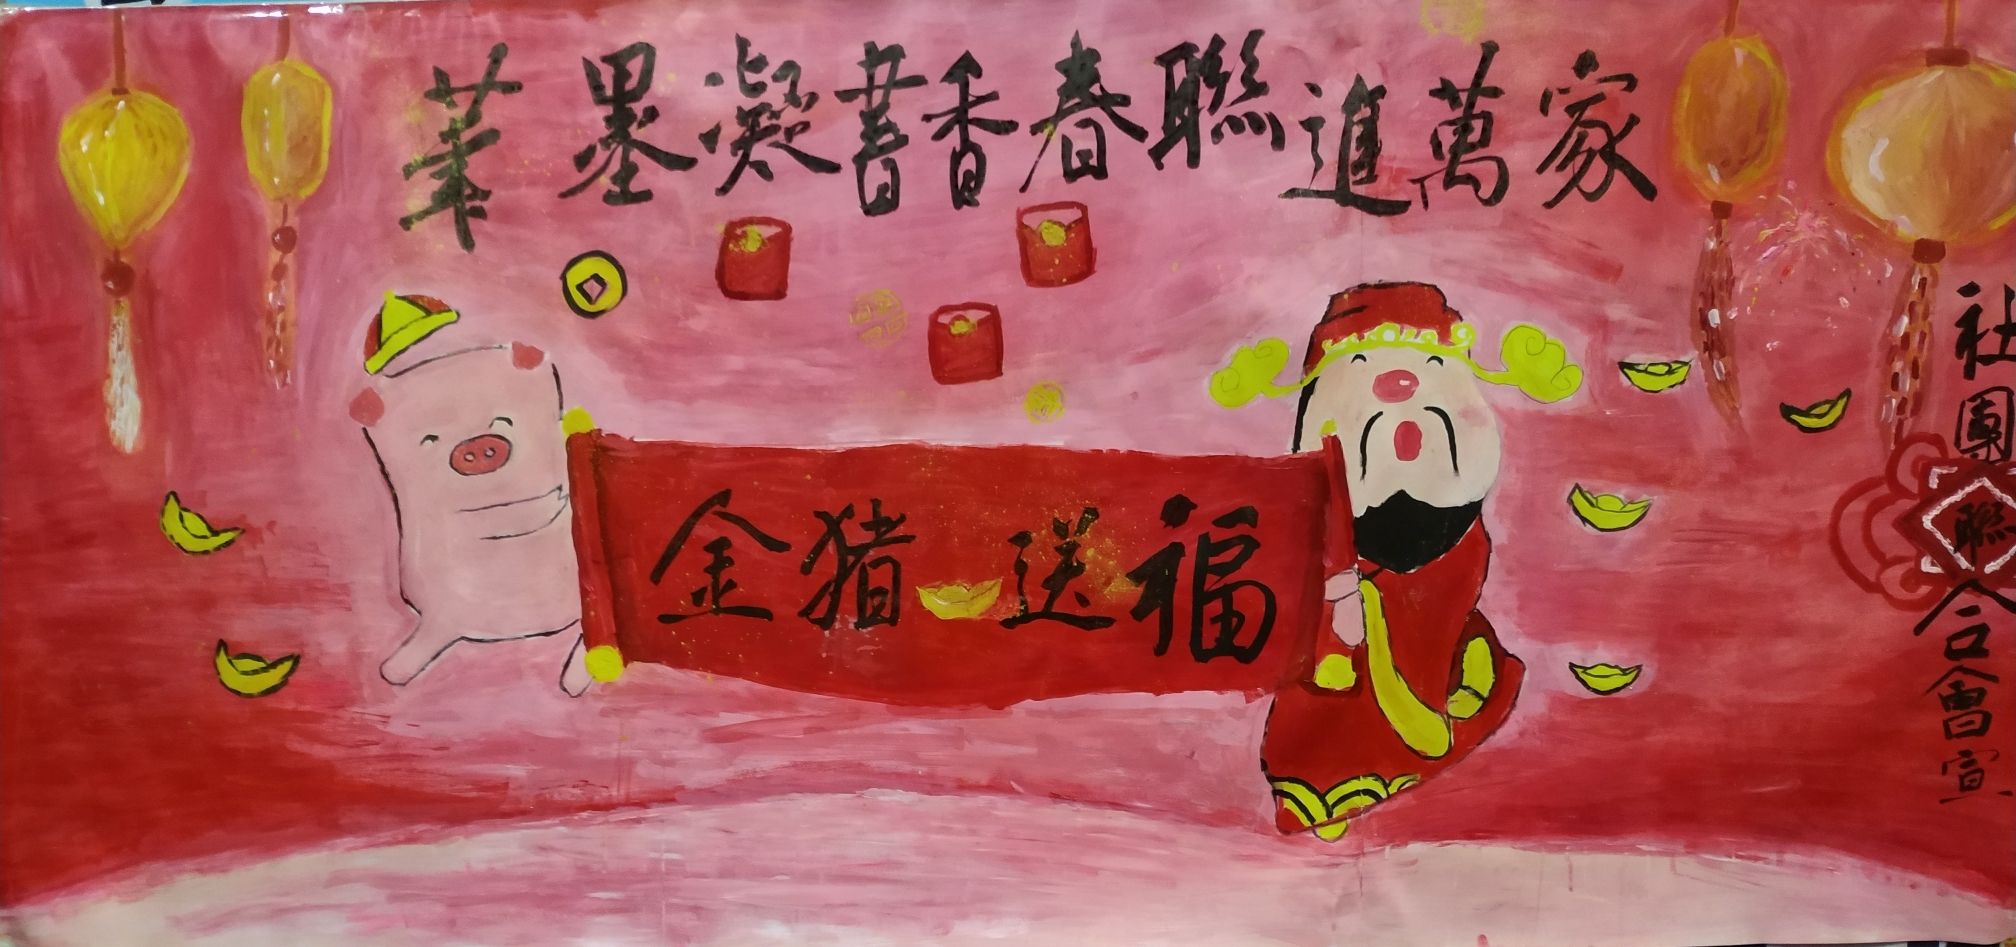 筆墨凝書香春聯進萬家
金猪送福
社團聯合會宣